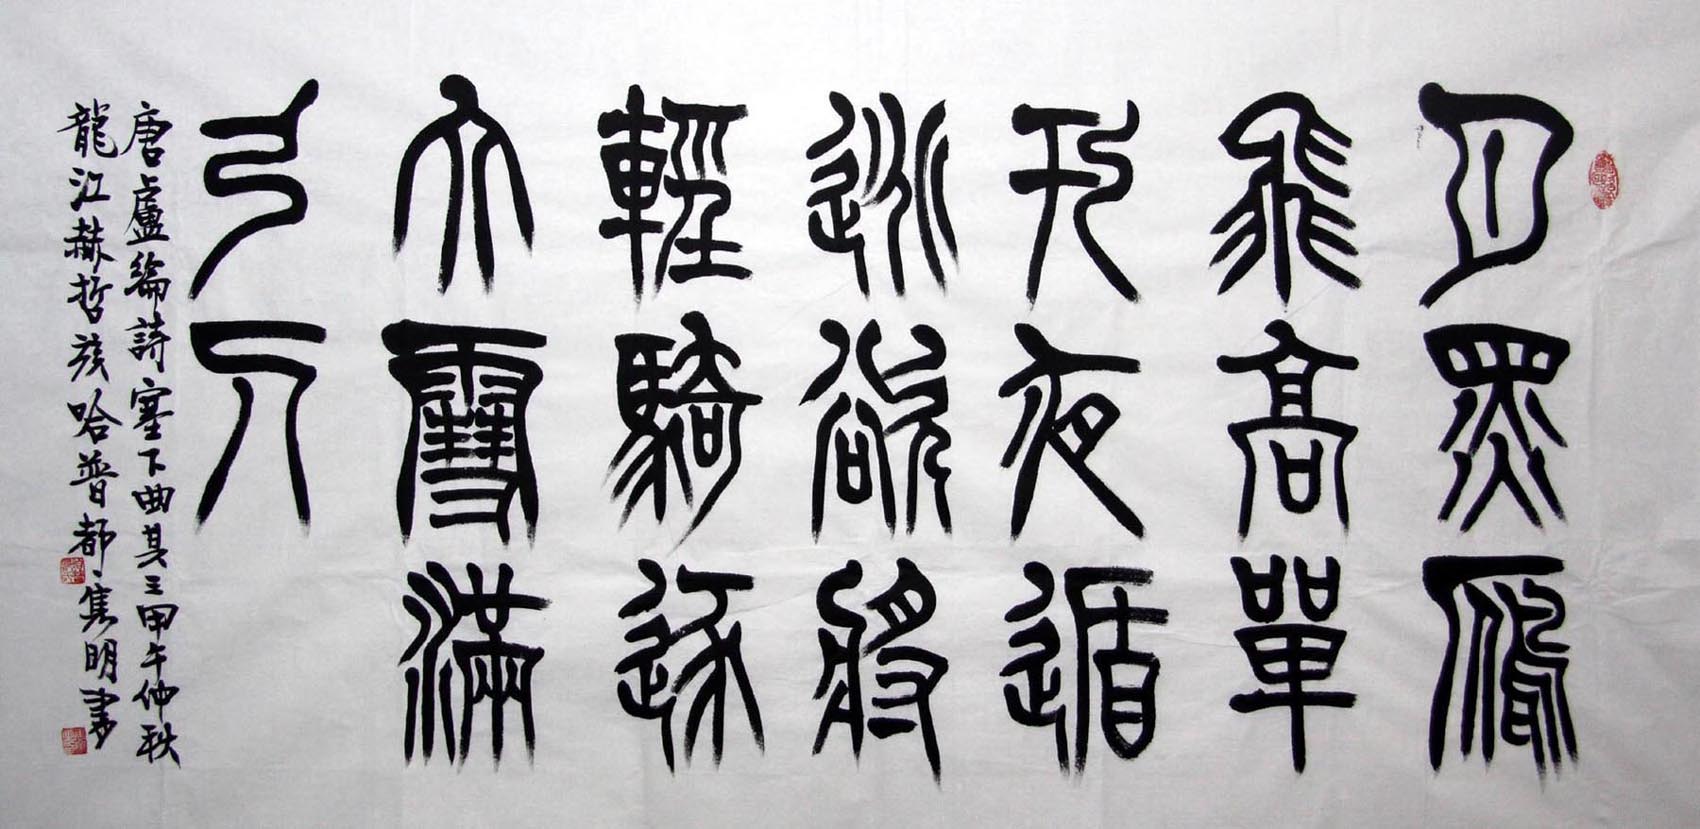 月黑雁
飛高單
于夜遁
逃欲將
輕騎逐
大雪滿
弓刀
唐盧綸詩塞下曲其三甲午仲秋
龍江赫哲族哈普都·隽明書